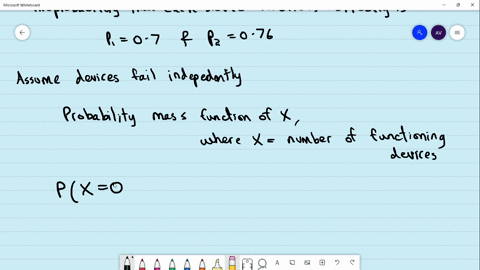 Microsoft Whiteboard
P₁ = 0.7 & P₂ = 0.76
AV
Assume devices fail indepedently
Probability mass function of X,
where X = number of functioning
devices
P(X=0